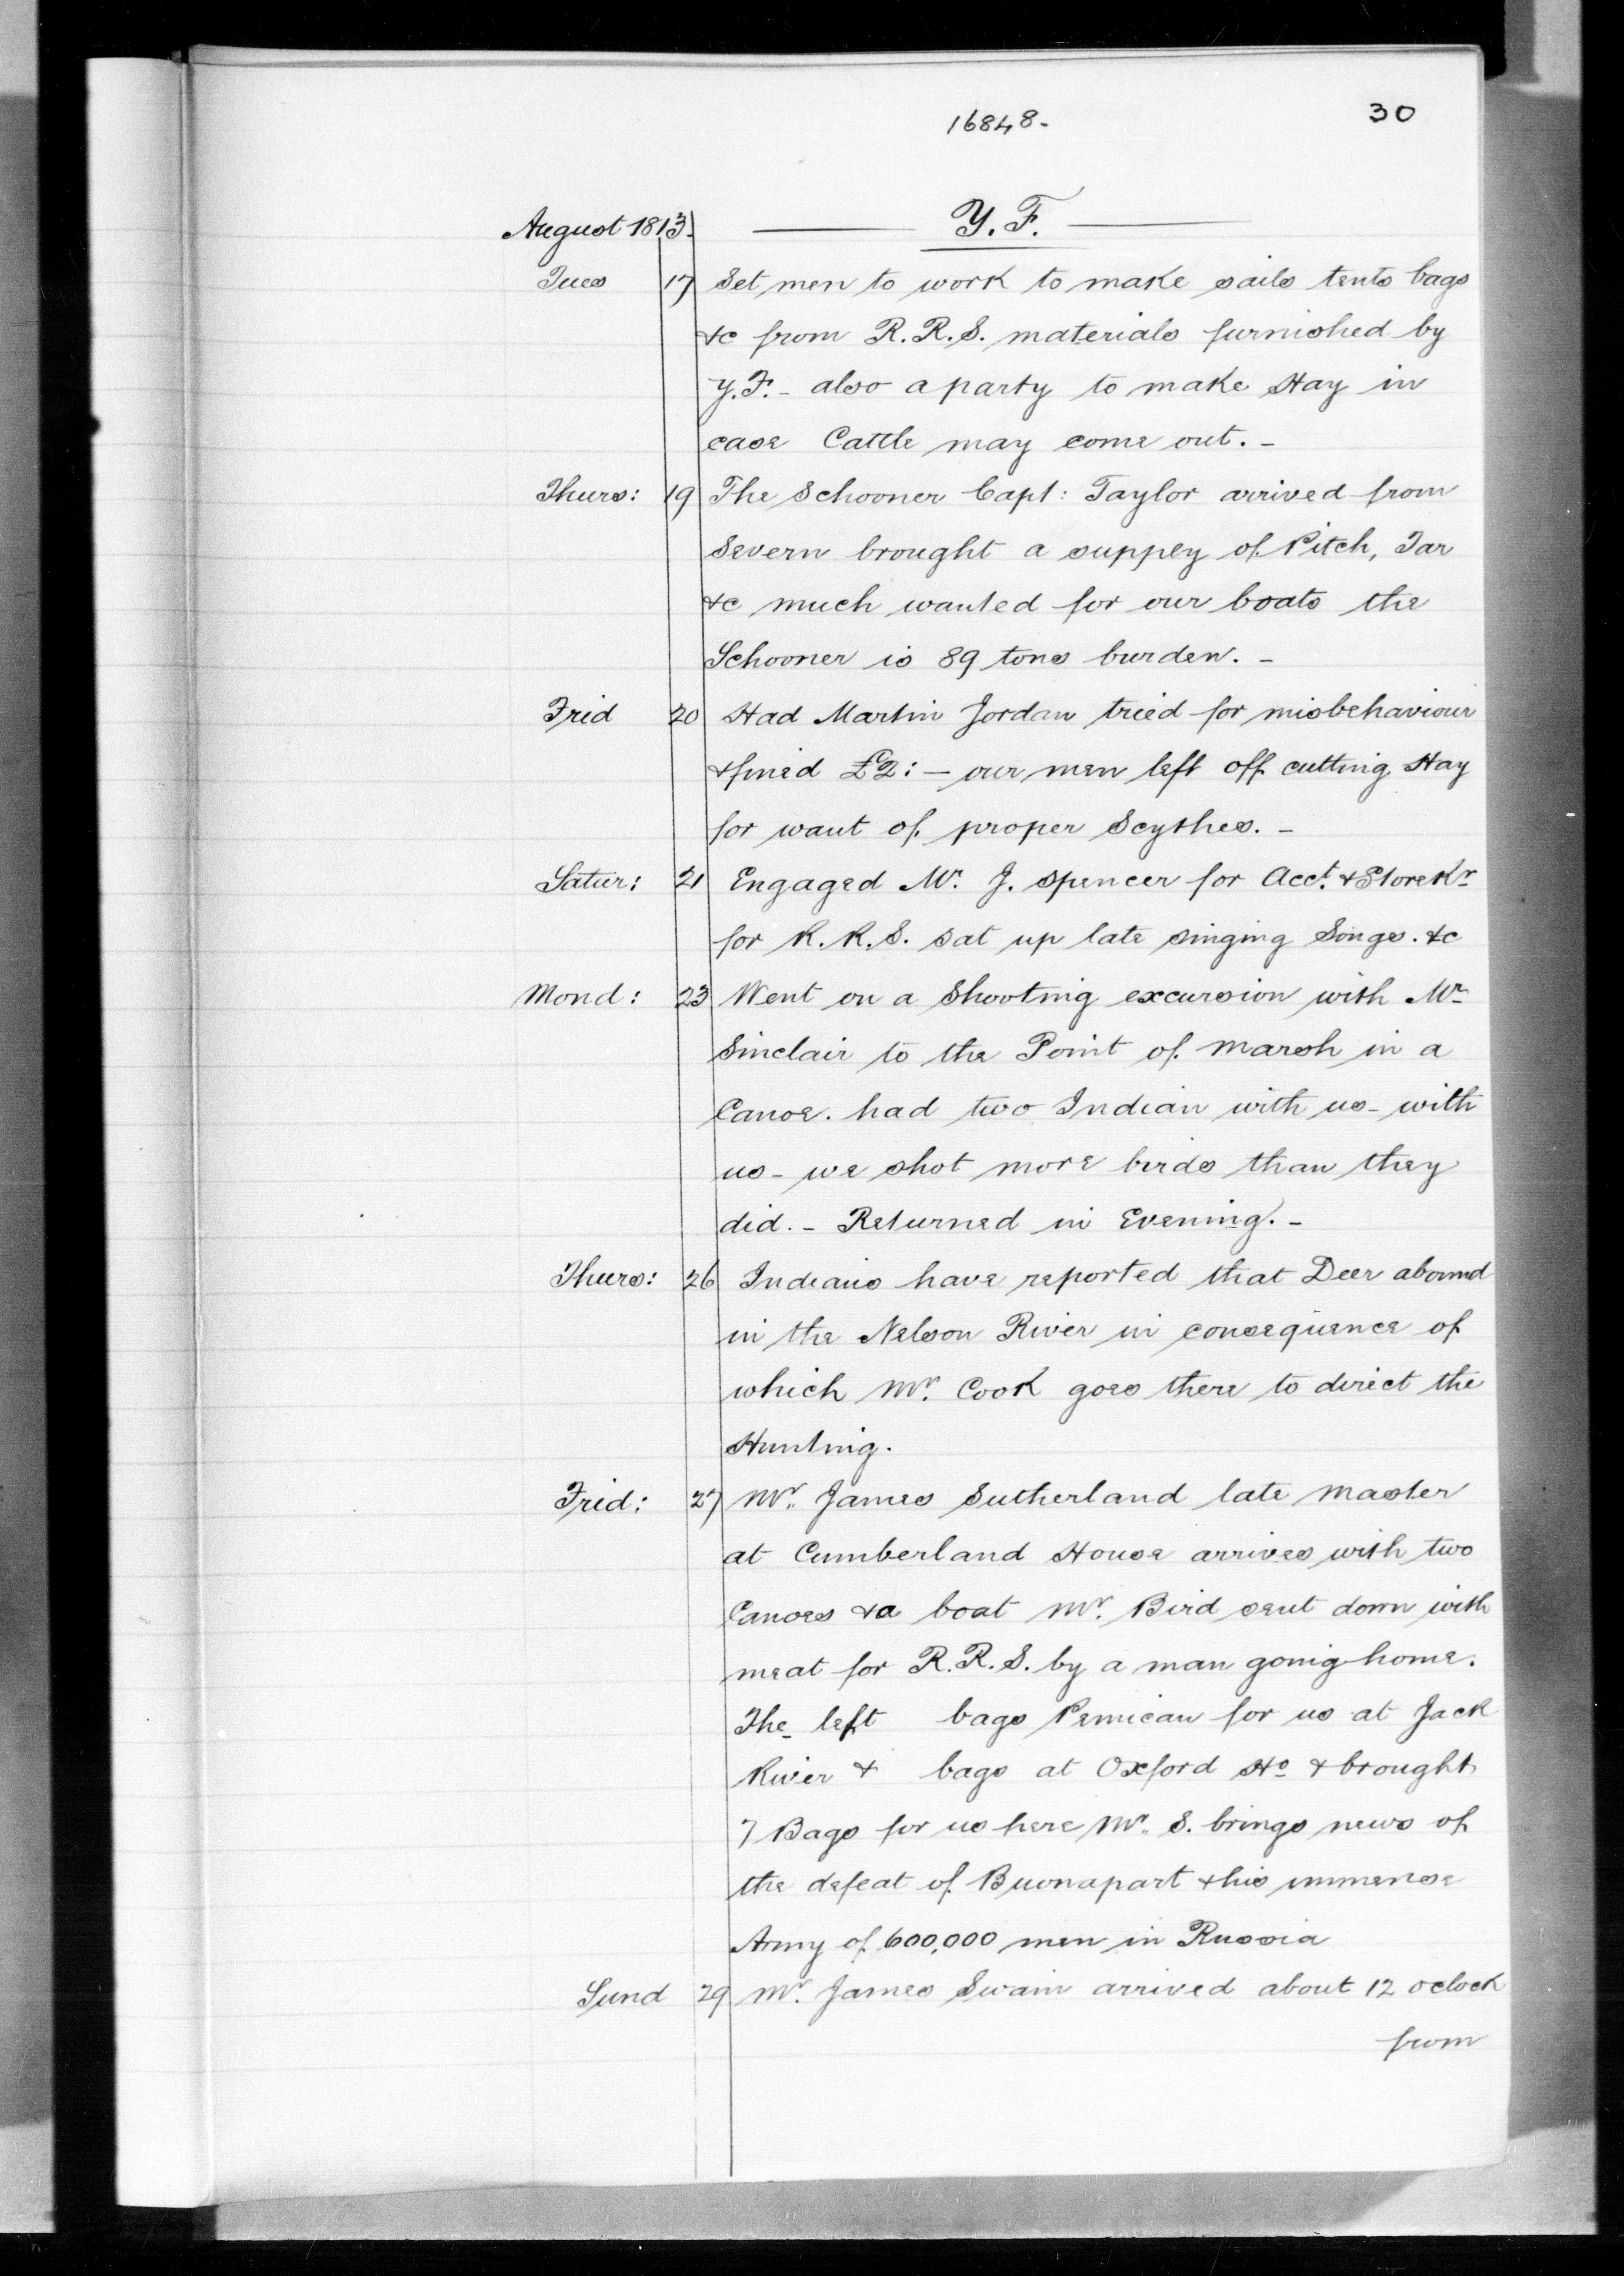 16848-
30
August 1813. Y. F.
Tues 17 Set men to work to make sails tents bags
&c from R. R. S. materials furnished by
Y. F. - also a party to make Hay in
case Cattle may come out. -
Thurs: 19 The Schooner Capt: Taylor arrived from
Severn brought a supply of Pitch, Tar
&c much wanted for our boats the
Schooner is 89 tons burden. -
Frid 20 Had Martin Jordan tried for misbehaviour
& fined £2: - our men left off cutting Hay
for want of proper Scythes. -
Satur: 21 Engaged Mr. J. Spencer for Acct. & StoreKr
for R. R. S. sat up late singing Songs. &c
Mond: 23 Went on a Shooting excursion with Mr
Sinclair to the Point of Marsh in a
Canoe. had two Indian with us - with
us - we shot more birds than they
did. - Returned in Evening. -
Thurs: 26 Indians have reported that Deer abound
in the Nelson River in consequence of
which Mr. Cook goes there to direct the
Hunting.
Frid: 27 Mr. James Sutherland late Master
at Cumberland House arrives with two
Canoes & a boat Mr. Bird sent down with
meat for R. R. S. by a man going home.
The left bags Pemican for us at Jack
River & bags at Oxford Ho & brought
7 Bags for us here Mr. S. brings news of
the defeat of Buonapart & his immense
Army of 600,000 men in Russia
Sund 29 Mr. James Swain arrived about 12 oclock
from